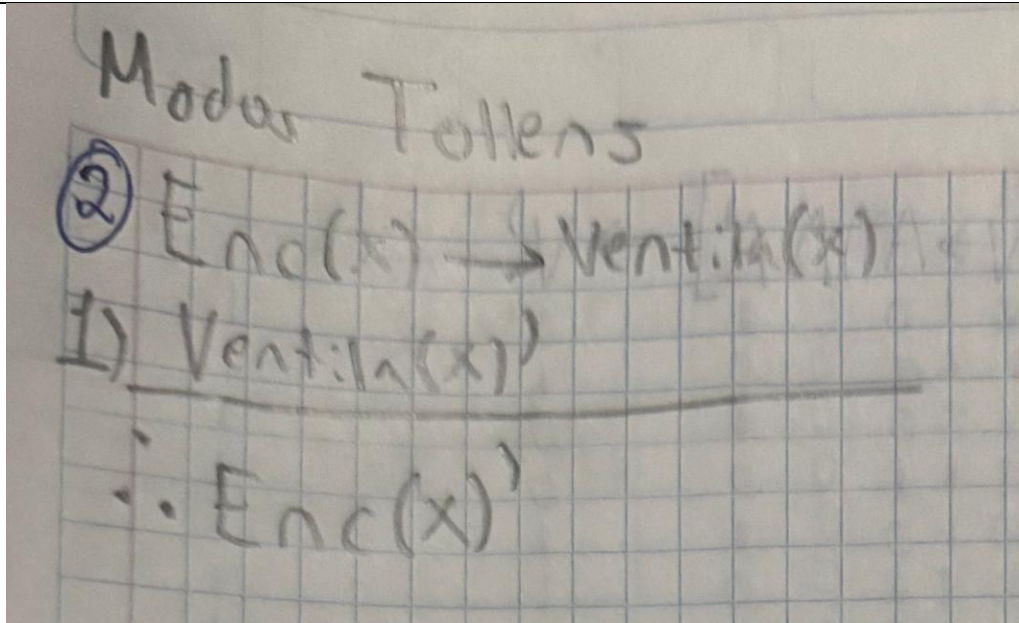 Modos Tollens
② Enc(x) → Ventila(x)
1) Ventila(x)'
∴ Enc(x)'